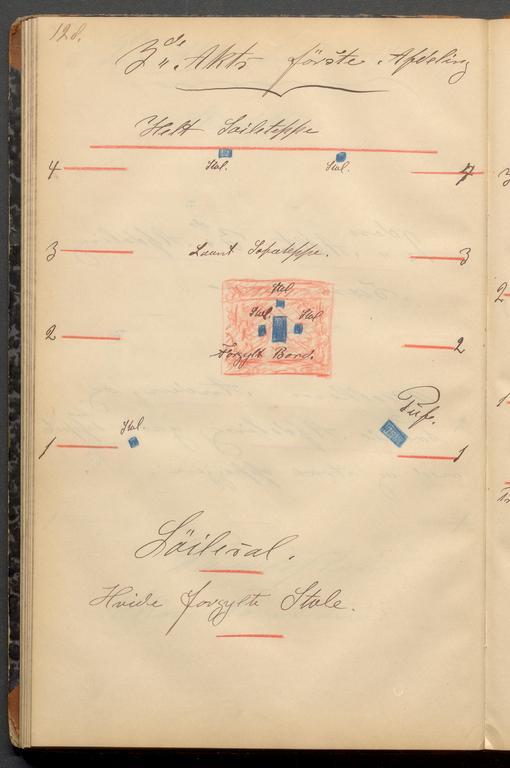 128.
3die Akts förste Afdeling
Helt Söileteppe
Stol. Stol.
4 4
3 Laant Sofateppe. 3
Stol
Stol. Stol
2 2
Forgylt Bord.
Puf.
Stol.
1 1
Söilesal.
Hvide forgylte Stole.